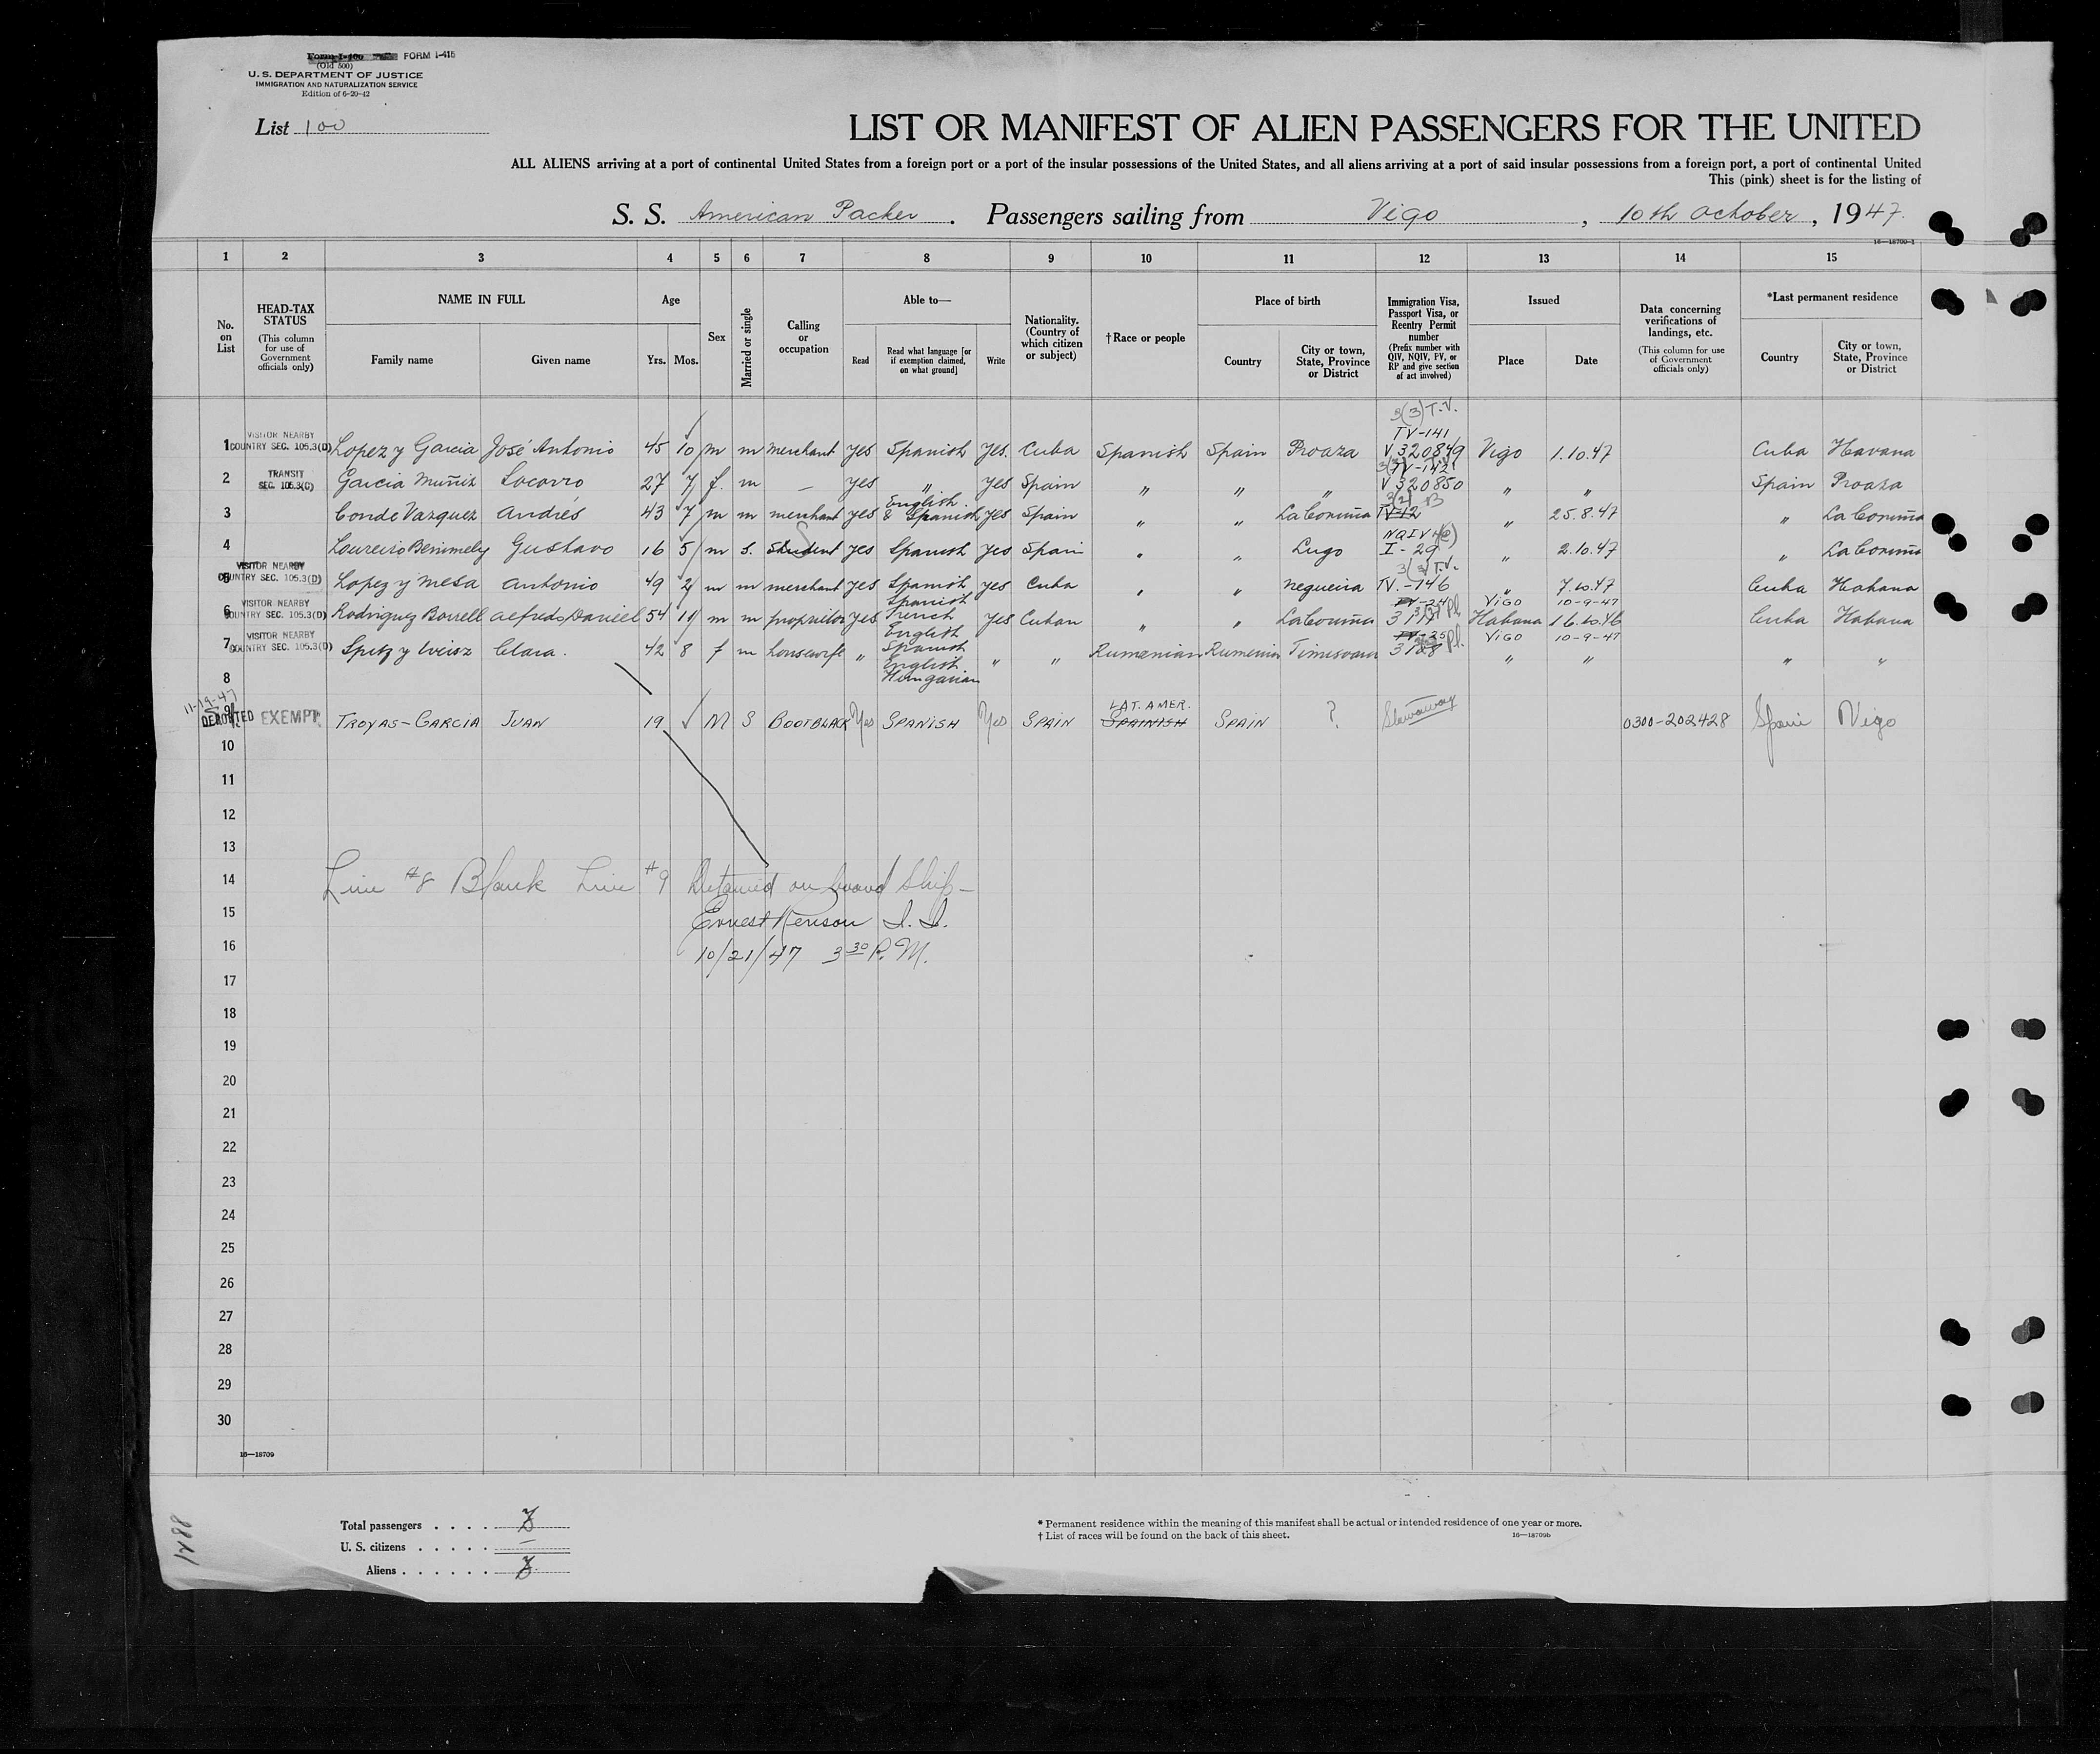 Form I-400 FORM I-415
(Old 500)
U. S. DEPARTMENT OF JUSTICE
IMMIGRATION AND NATURALIZATION SERVICE
Edition of 6-20-42
List 100
LIST OR MANIFEST OF ALIEN PASSENGERS FOR THE UNITED
ALL ALIENS arriving at a port of continental United States from a foreign port or a port of the insular possessions of the United States, and all aliens arriving at a port of said insular possessions from a foreign port, a port of continental United
This (pink) sheet is for the listing of
S. S. American Packer . Passengers sailing from Vigo , 10th October , 1947.
16—18709-1
1 2 3 4 5 6 7 8 9 10 11 12 13 14 15
No. on List
HEAD-TAX STATUS
(This column for use of Government officials only)
NAME IN FULL
Family name Given name
Age
Yrs. Mos.
Sex
Married or single
Calling or occupation
Able to—
Read Read what language [or if exemption claimed, on what ground] Write
Nationality. (Country of which citizen or subject)
† Race or people
Place of birth
Country City or town, State, Province or District
Immigration Visa, Passport Visa, or Reentry Permit number
(Prefix number with QIV, NQIV, PV, or RP and give section of act involved)
Issued
Place Date
Data concerning verifications of landings, etc.
(This column for use of Government officials only)
*Last permanent residence
Country City or town, State, Province or District
3(3) T.V.
TV-141
1 VISITOR NEARBY COUNTRY SEC. 105.3(D) Lopez y Garcia José Antonio 45 10 m m merchant yes Spanish yes. Cuba Spanish Spain Proaza V 320849 Vigo 1.10.47 Cuba Havana
TV-142
2 TRANSIT SEC. 105.3(C) Garcia Muñiz Socorro 27 7 f. m — yes " yes Spain " " " V 320850 " " Spain Proaza
3 Conde Vazquez Andrés 43 7 m m merchant yes English & Spanish yes Spain " " La Coruña TV-12 " 25.8.47 " La Coruña
4 Loureiro Gustavo 16 5 m s. Student yes Spanish yes Spain " " Lugo I-29 " 2.10.47 " La Coruña
3(3) T.V.
5 VISITOR NEARBY COUNTRY SEC. 105.3(D) Lopez y Mesa Antonio 49 2 m m merchant yes Spanish yes Cuba " " Negueira TV.-146 " 7.10.47 Cuba Habana
TV-24 Vigo 10-9-47
6 VISITOR NEARBY COUNTRY SEC. 105.3(D) Rodriguez Borrell Alfredo Daniel 54 11 m m proprietor yes Spanish French English yes Cuban " " La Coruña Habana 16.10.46 Cuba Habana
TV-25 Vigo 10-9-47
7 VISITOR NEARBY COUNTRY SEC. 105.3(D) Spitz y Weisz Clara. 42 8 f m housewife " Spanish English Hungarian " " Rumenian Rumenia Timisoara " " " "
8
11-19-47
9 DEPORTED EXEMPT TROYAS-GARCIA JUAN 19 M S BOOTBLACK Yes SPANISH Yes SPAIN LAT. AMER. SPAINISH SPAIN ? Stowaway 0300-202428 Spain Vigo
10
11
12
13
14 Line #8 Blank Line #9 Detained on board Ship-
15 Ernest Henson I. I.
16 10/21/47 3 30 P. M.
17
18
19
20
21
22
23
24
25
26
27
28
29
30
16—18709
Total passengers . . . .
U. S. citizens . . . . . —
Aliens . . . . . .
* Permanent residence within the meaning of this manifest shall be actual or intended residence of one year or more.
† List of races will be found on the back of this sheet. 16—18709b
1288